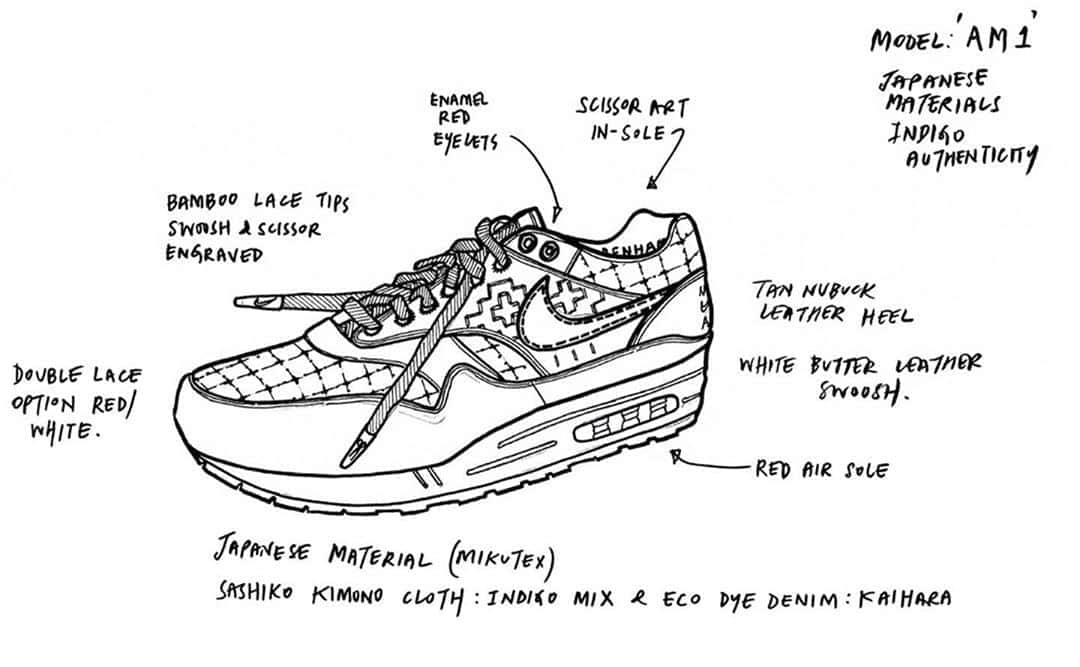 MODEL: 'AM1'
JAPANESE
MATERIALS
INDIGO
AUTHENTICITY
ENAMEL
RED
EYELETS
SCISSOR ART
IN-SOLE
BAMBOO LACE TIPS
SWOOSH & SCISSOR
ENGRAVED
TAN NUBUCK
LEATHER HEEL
DOUBLE LACE
OPTION RED/
WHITE.
WHITE BUTTER LEATHER
SWOOSH.
RED AIR SOLE
JAPANESE MATERIAL (MIKUTEX)
SASHIKO KIMONO CLOTH: INDIGO MIX & ECO DYE DENIM: KAIHARA